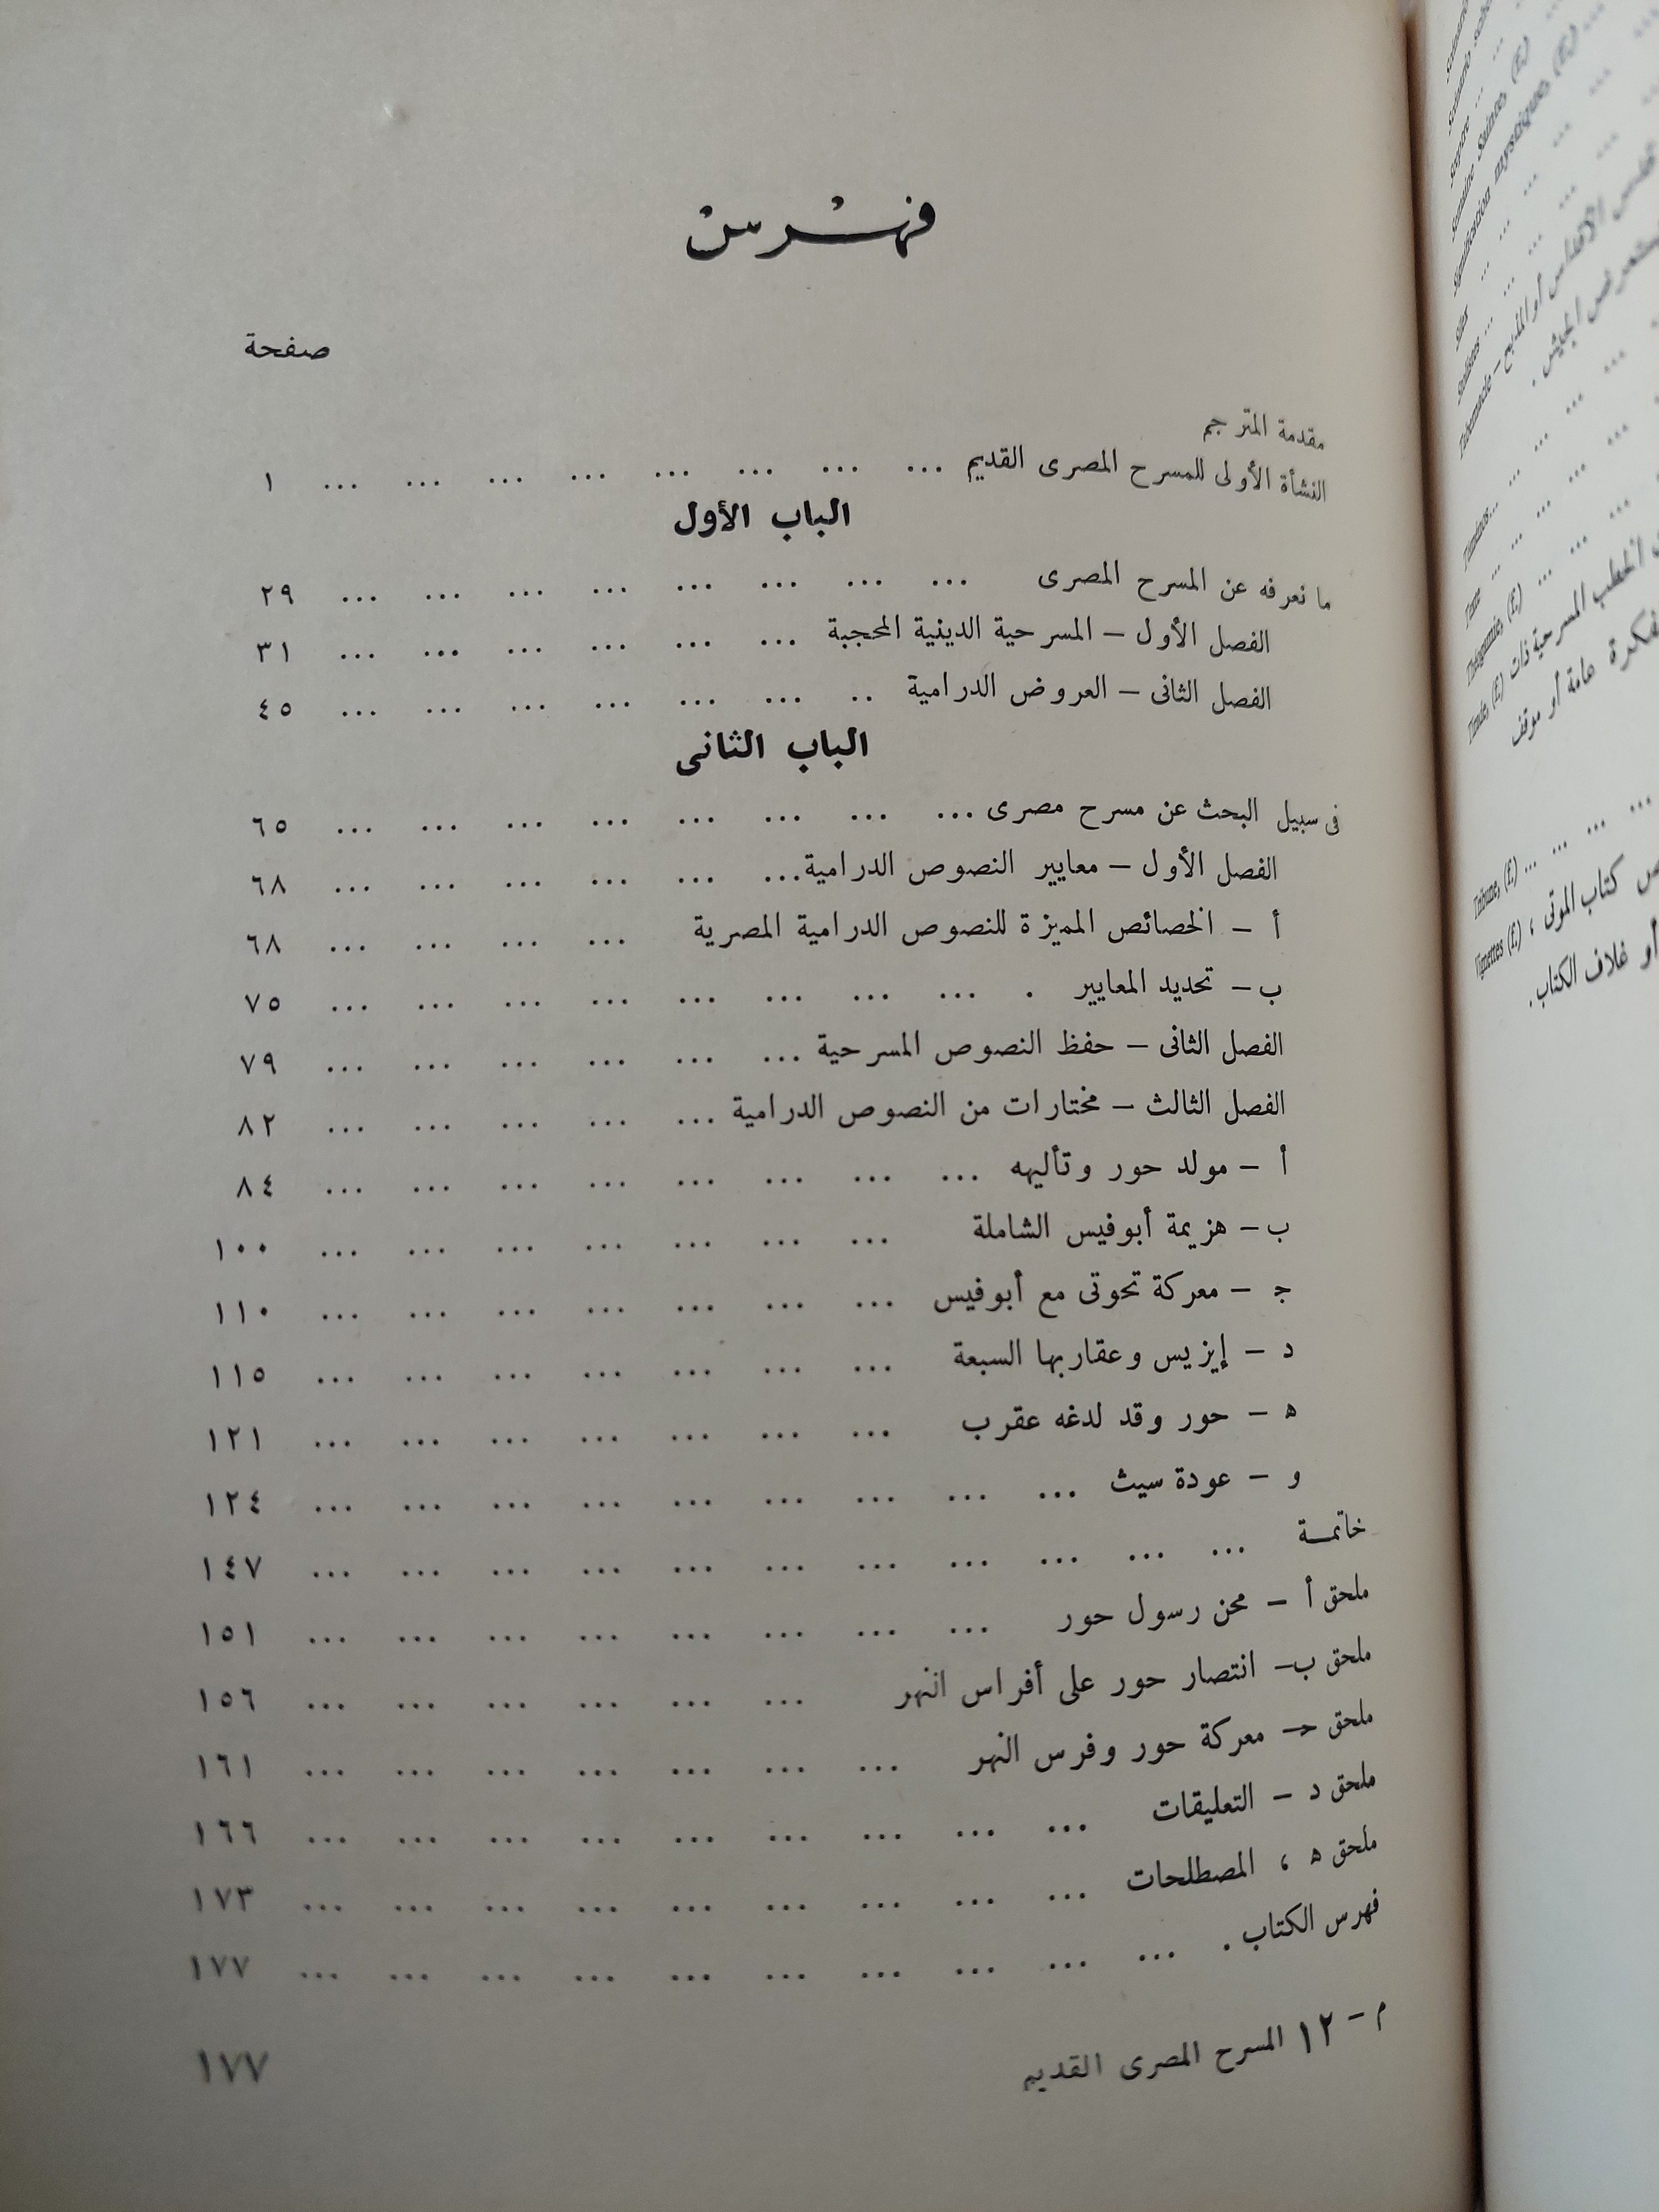 فهرس
صفحة
مقدمة المترجم
النشأة الأولى للمسرح المصرى القديم ... ... ... ... ... ... ... ... ١
الباب الأول
ما نعرفه عن المسرح المصرى ... ... ... ... ... ... ... ... ٢٩
الفصل الأول – المسرحية الدينية المحجبة ... ... ... ... ... ... ٣١
الفصل الثانى – العروض الدرامية .. ... ... ... ... ... ... ٤٥
الباب الثانى
فى سبيل البحث عن مسرح مصرى ... ... ... ... ... ... ... ... ٦٥
الفصل الأول – معايير النصوص الدرامية ... ... ... ... ... ... ٦٨
أ – الخصائص المميزة للنصوص الدرامية المصرية ... ... ... ... ٦٨
ب – تحديد المعايير . ... ... ... ... ... ... ... ... ٧٥
الفصل الثانى – حفظ النصوص المسرحية ... ... ... ... ... ... ٧٩
الفصل الثالث – مختارات من النصوص الدرامية ... ... ... ... ... ٨٢
أ – مولد حور وتأليهه ... ... ... ... ... ... ... ... ٨٤
ب – هزيمة أبوفيس الشاملة ... ... ... ... ... ... ... ١٠٠
ج – معركة تحوتى مع أبوفيس ... ... ... ... ... ... ... ١١٠
د – إيزيس وعقاربها السبعة ... ... ... ... ... ... ... ١١٥
ه – حور وقد لدغه عقرب ... ... ... ... ... ... ... ١٢١
و – عودة سيث ... ... ... ... ... ... ... ... ... ١٢٤
خاتمـة ... ... ... ... ... ... ... ... ... ... ... ١٤٧
ملحق أ – محن رسول حور ... ... ... ... ... ... ... ... ١٥١
ملحق ب – انتصار حور على أفراس النهر ... ... ... ... ... ... ١٥٦
ملحق ح – معركة حور وفرس النهر ... ... ... ... ... ... ... ١٦١
ملحق د – التعليقات ... ... ... ... ... ... ... ... ... ١٦٦
ملحق ه ، المصطلحات ... ... ... ... ... ... ... ... ... ١٧٣
فهرس الكتاب . ... ... ... ... ... ... ... ... ... ... ١٧٧
م – ١٢ المسرح المصرى القديم
١٧٧
Semaine Sainte (f.)
Signification mystiques (f.)
Sites ...
Tabernacle – قدس الأقداس أو المذبح
الجيش .
Théogamie, (f.) ...
Tirade, (f.) الخطب المسرحية ذات
فكرة عامة أو موقف
Tribune, (f.) ... ... ... ...
Vignettes (f.) كتاب الموتى ،
أو غلاف الكتاب .